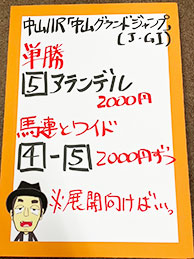 中山11R「中山グランドジャンプ」
(J・GI)
単勝
5 アランデル
2000円
馬連とワイド
4-5 2000円ずつ
※展開向けば…っ